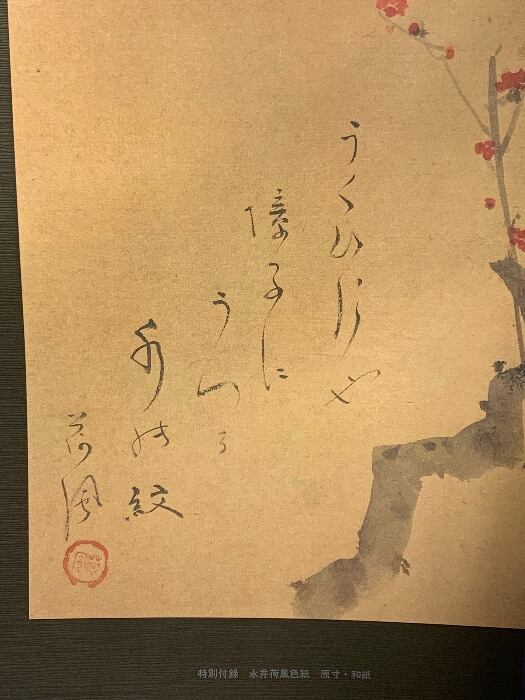 うくひすや
障子に
うつる
水の紋
荷風
特別付録 永井荷風色紙 原寸・和紙